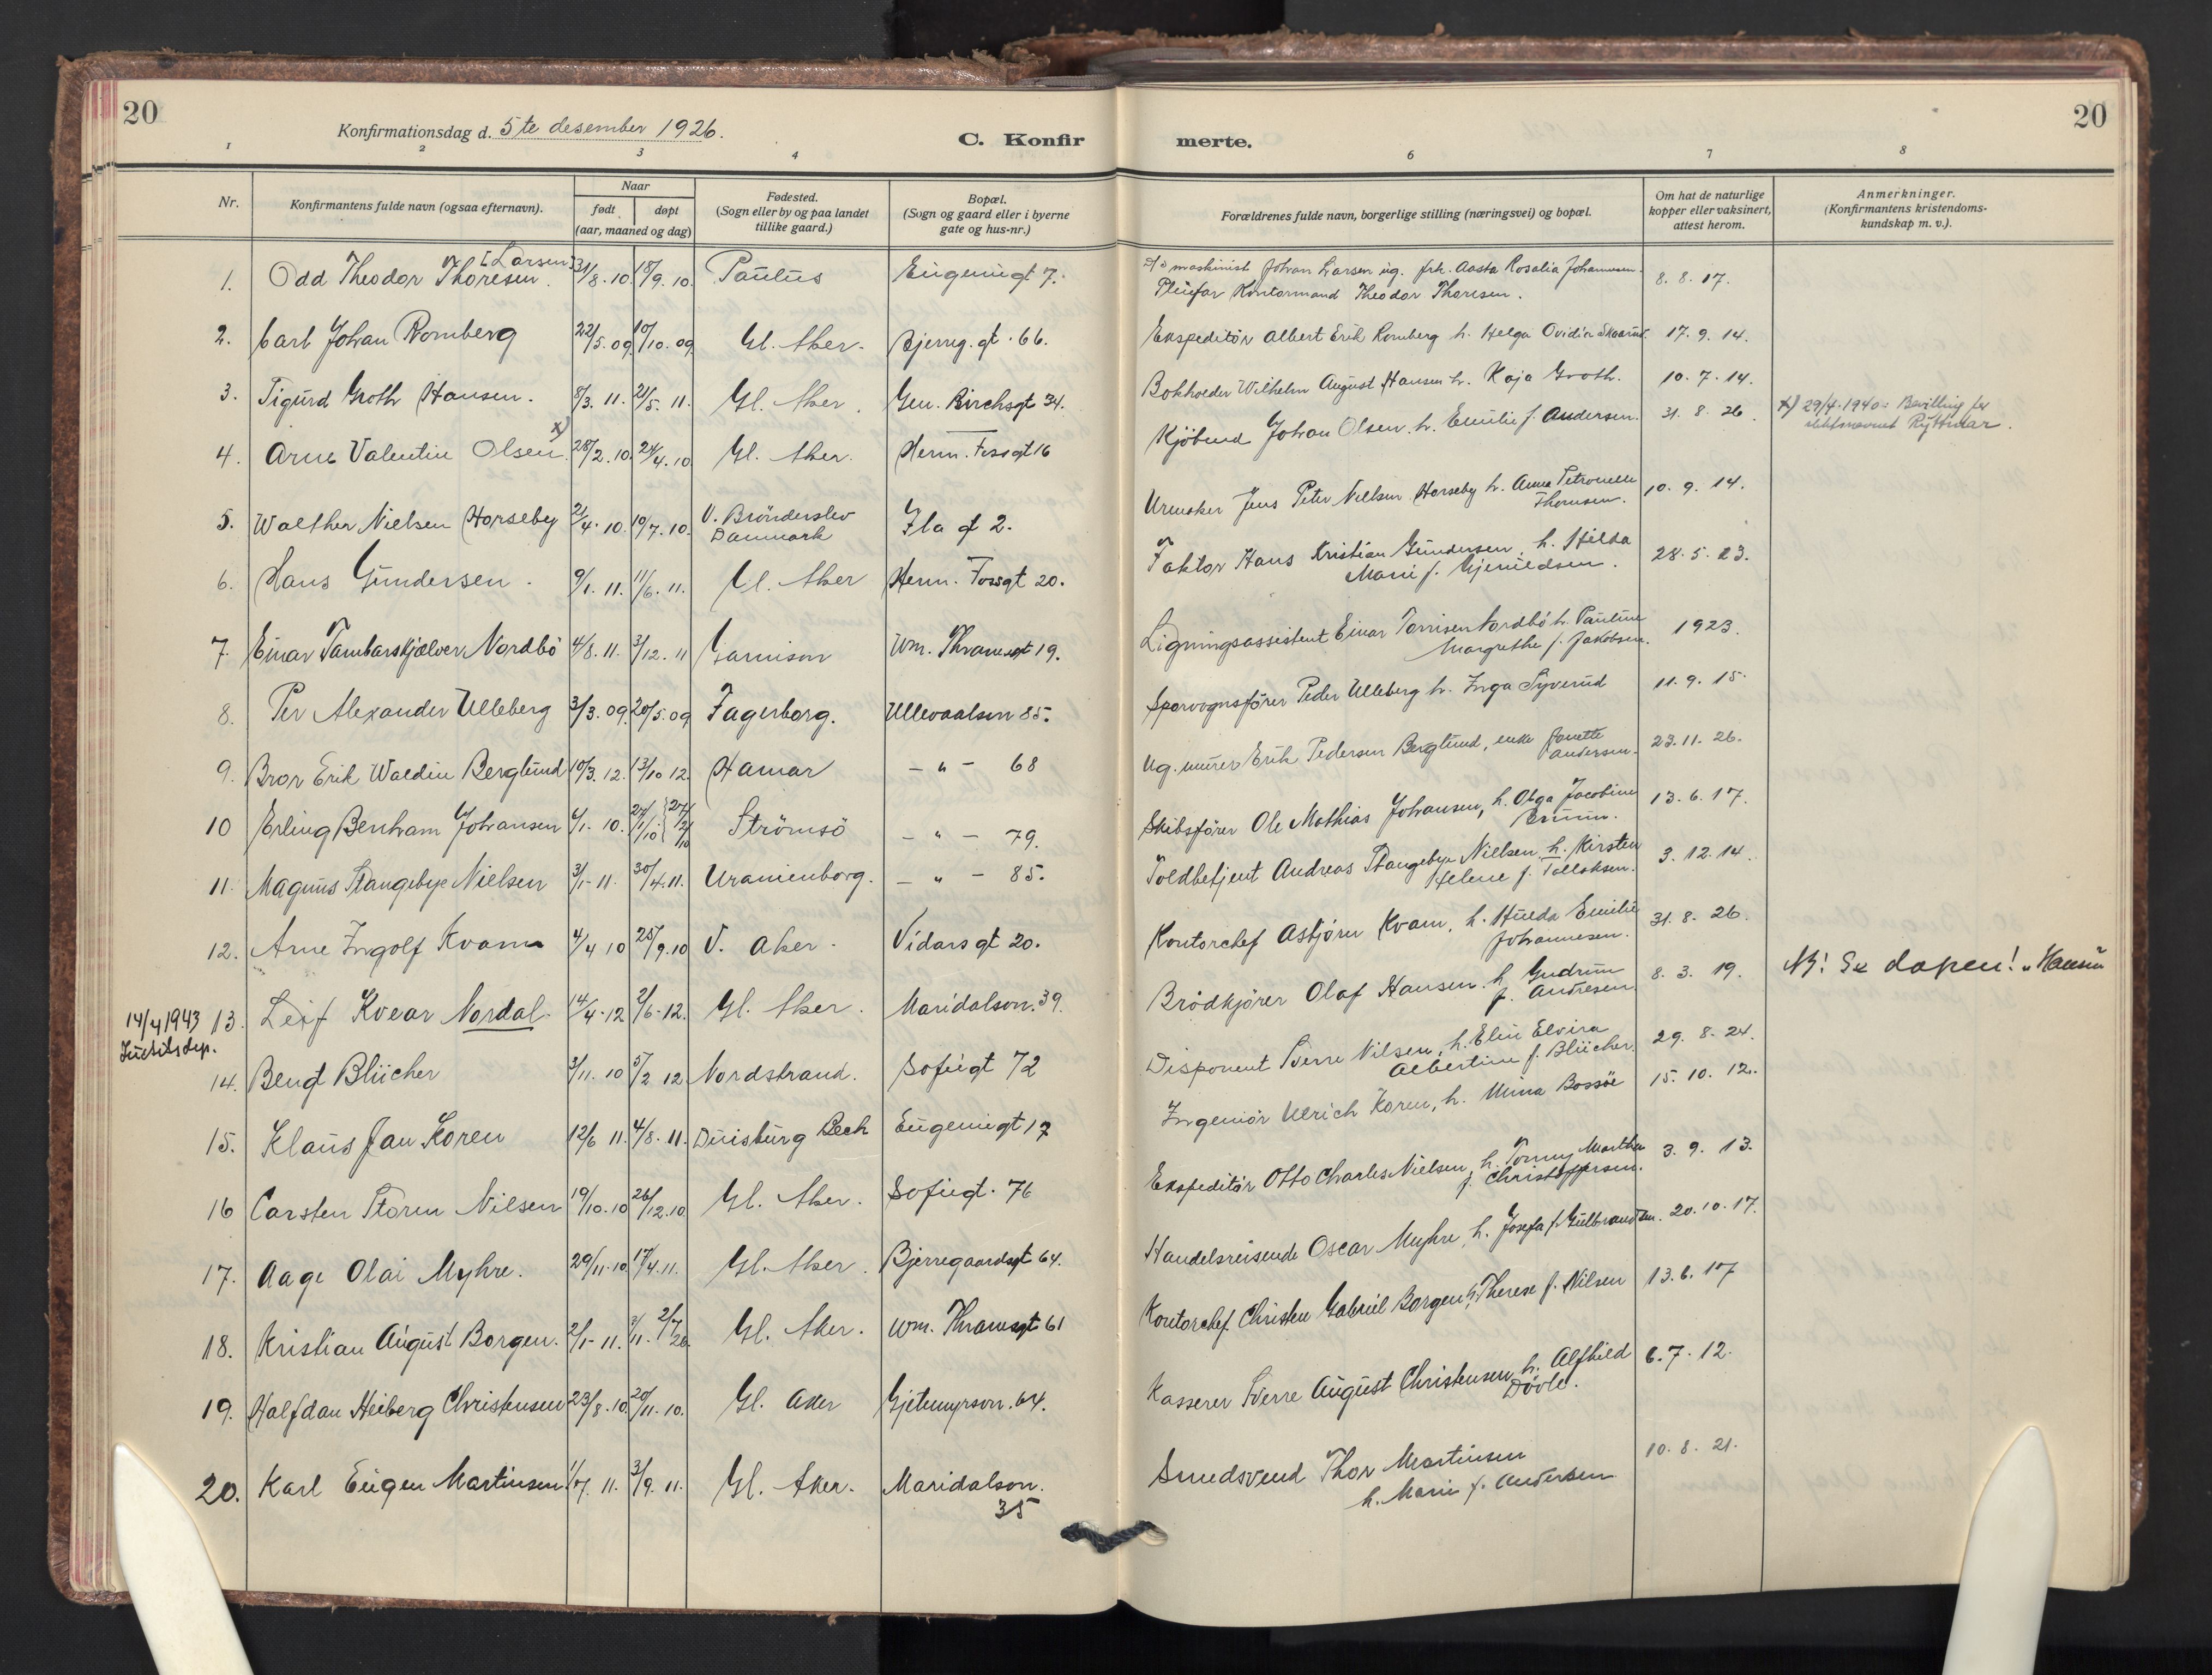 20
Konfirmationsdag d. 5te desember 1926.
C. Konfirmerte.
20
1 2 3 4 6 7 8
Nr.
Konfirmantens fulde navn (ogsaa efternavn).
Naar
født døpt
(aar, maaned og dag)
Fødested.
(Sogn eller by og paa landet
tillike gaard.)
Bopæl.
(Sogn og gaard eller i byerne
gate og hus-nr.)
Forældrenes fulde navn, borgerlige stilling (næringsvei) og bopæl.
Om hat de naturlige
kopper eller vaksinert,
attest herom.
Anmerkninger.
(Konfirmantens kristendoms-
kundskap m. v.).
[Larsen]
1. Odd Theodor Thoresen. 31/8.10. 18/9.10. Paulus Eugenigt 7. maskinist Johan Larsen ug. frk. Aasta Rosalia Johannesen. 8.8.17.
Pleiefar Kontormand Theodor Thoresen.
2. Carl Johan Romberg 22/5.09. 10/10.09. Gl. Aker. Bjerreg.gt. 66. Ekspeditör Albert Erik Romberg h. Helga Ovidia Skaarud. 17.9.14.
3. Sigurd Groth Hansen. 8/3.11. 21/5.11. Gl. Aker. Gen. Birchsgt 34. Bokholder Wilhelm August Hansen h. Kaja Groth. 10.7.14.
4. Arne Valentin Olsen x) 28/2.10. 24/4.10. Gl. Aker. Herm. Fossgt 16 Kjöbmd Johan Olsen h. Emilie f. Andersen. 31.8.26. x) 29/4-1940: Bevilling for
slektsnavnet Ryttmar.
5. Walther Nielsen Horseby 2/4.10. 10/7.10. V. Brönderslev
Danmark Ila gt 2. Urmaker Jens Peter Nielsen Horseby h. Anna Petronelle
Thomsen. 10.9.14.
6. Hans Gundersen. 9/1.11. 11/6.11. Gl. Aker Herm. Fossgt 20. Faktor Hans Kristian Gundersen, h. Hilda
Marie f. Gjerueldsen. 28.5.23.
7. Einar Tambarskjælver Nordbö 4/8.11. 3/12.11 Garnison Wm. Thranesgt 19. Ligningsassistent Einar Tonnisen Nordbö h. Pauline
Margrethe f. Jakobsen. 1923.
8. Per Alexander Ulleberg 3/3.09. 20/5.09 Fagerborg. Ullevaalsvn 85. Sporvognsförer Peder Ulleberg h. Inga Syverud 11.9.15.
9. Bror Erik Waldin Berglund 10/3.12. 13/10 12. Hamar - " - 68 Ug. murer Erik Pedersen Berglund, enke Janette
Andersen. 23.11.26.
10 Erling Benham Johansen 6/1.10. 27/1/10 Strömsö - " - 79. Skibsförer Ole Mathias Johansen, h. Olga Jacobine
Bruun. 13.6.17.
11. Magnus Stangebye Nielsen 3/1-11. 30/4.11. Uranienborg. - " - 85. Toldbetjent Andreas Stangebye Nielsen h. Kirsten
Helene f. Tollaksen. 3.12.14.
12. Arne Ingolf Kvam 4/4 10 25/9.10 V. Aker. Vidars gt 20. Kontorchef Asbjörn Kvam, h. Hulda Emilie
Johannesen. 31.8.26.
14/4 1943
Justitsdep.
13. Leif Kvear Nordal. 14/4-12 2/6-12. Gl. Aker. Maridalsvn. 39. Brödkjörer Olaf Hansen. h. Gudrun
f. Andresen. 8.3.19. NB! Se dåpen! "Hansen"
14. Bengt Blücher 3/11.10 5/2 12. Nordstrand. Sofiegt 72 Disponent Sverre Nilsen, h. Elin Elvira
Albertine f. Blücher. 29.8.24.
15. Klaus Jan Koren 12/6 11. 4/8.11. Duisburg Beck Eugenigt 17 Ingeniör Ulrich Koren, h. Mina Bassöe 15.10.12.
16 Carsten Storm Nilsen 19/10.10 26/12.10. Gl. Aker. Sofiegt. 76 Ekspeditör Otto Charles Nielsen, h. Tonny Marthea
f. Christoffersen. 3.9.13.
17. Aage Olai Myhre. 29/11.10. 17/4.11. Gl. Aker. Bjerregaardsgt 64. Handelsreisende Oscar Myhre, h. Josefa f. Gulbrandsen. 20.10.17.
18. Kristian August Borgen. 2/1-11. 2/7 26. Gl. Aker. Wm. Thranesgt 61 Kontorchef Christen Gabriel Borgen h. Therese f. Nilsen 13.6.17
19. Halfdan Heiberg Christensen 23/8.10 20/11.10. Gl. Aker Gjetemyrsvn. 64. Kasserer Sverre August Christensen h. Alfhild
Dövle. 6.7.12.
20. Karl Eugen Martinsen 1/7.11. 3/9.11. Gl. Aker. Maridalsvn.
35 Smedsvend Thor Martinsen
h. Marie f. Andersen 10.8.21.